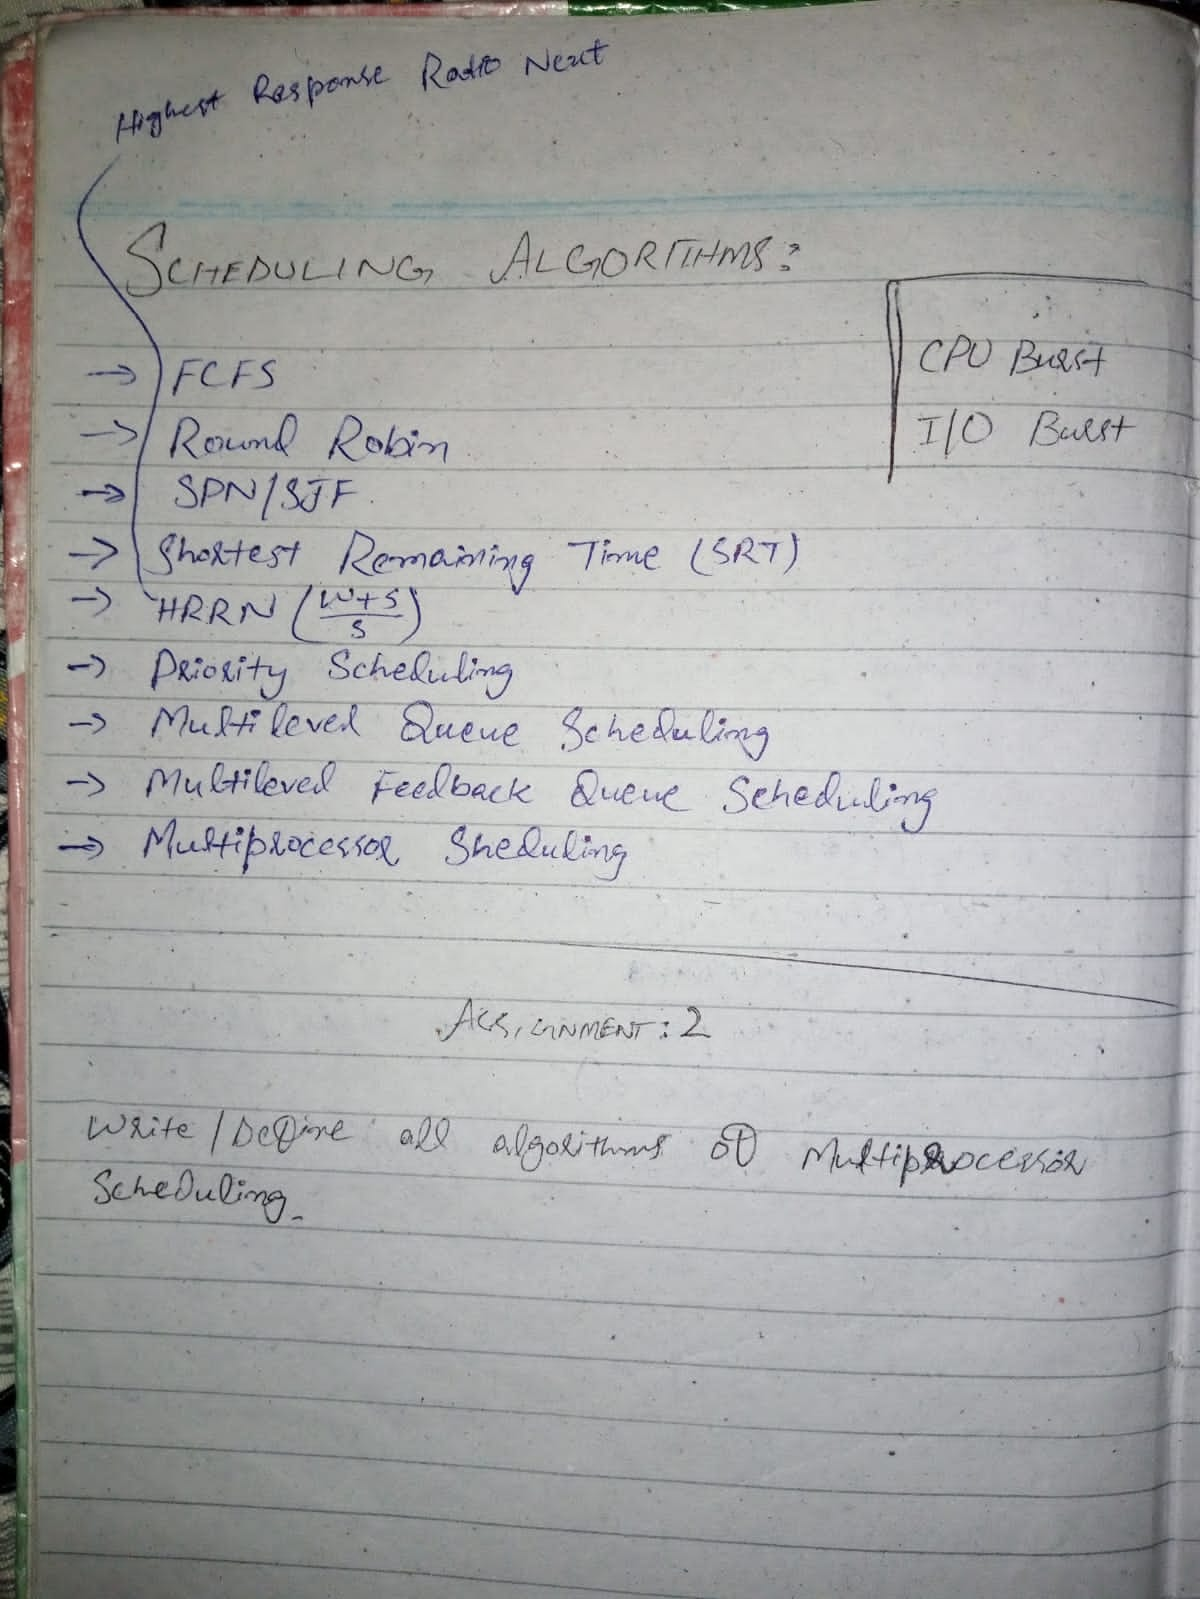 Highest Response Radio Next
SCHEDULING ALGORITHMS:
CPU Burst
I/O Burst
→ FCFS
→ Round Robin
→ SPN/SJF
→ Shortest Remaining Time (SRT)
→ HRRN (W+S/S)
→ Priority Scheduling
→ Multilevel Queue Scheduling
→ Multilevel Feedback Queue Scheduling
→ Multiprocessor Sheduling
ASSIGNMENT: 2
Write/Define all algorithms of Multiprocessor
Scheduling